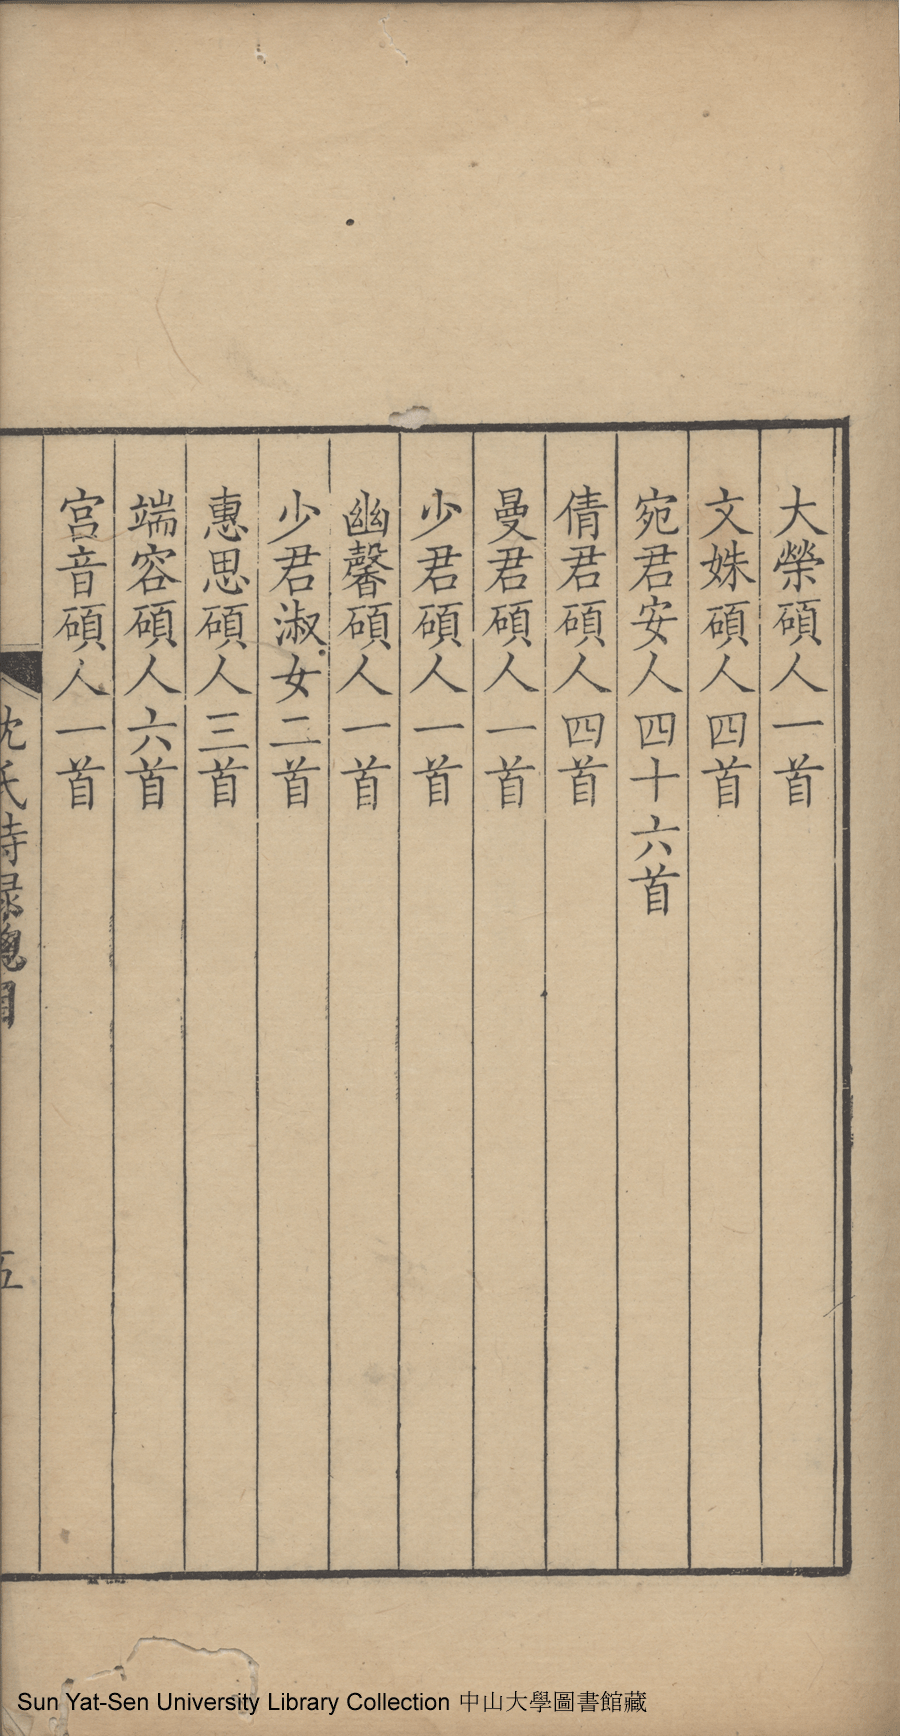 大榮碩人一首
文姝碩人四首
宛君安人四十六首
倩君碩人四首
曼君碩人一首
少君碩人一首
幽馨碩人一首
少君淑女二首
惠思碩人三首
端容碩人六首
宮音碩人一首
沈氏詩錄總目
五
Sun Yat-Sen University Library Collection 中山大學圖書館藏